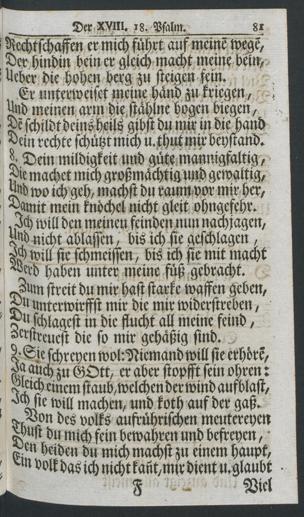 Der XVIII. 18. Psalm. 81
Rechtschaffen er mich führt auf meinē wegē,
Der hindin bein er gleich macht meine bein,
Ueber die hohen berg zu steigen fein.
Er unterweiset meine händ zu kriegen,
Und meinen arm die stählne bogen biegen,
Dē schild deins heils gibst du mir in die hand
Dein rechte schützt mich u. thut mir beystand.
8. Dein mildigkeit und güte mannigfaltig,
Die machet mich großmächtig und gewaltig,
Und wo ich geh, machst du raum vor mir her,
Damit mein knöchel nicht gleit ohngefehr.
Ich will den meinen feinden nun nachjagen,
Und nicht ablassen, bis ich sie geschlagen,
Ich will sie schmeissen, bis ich sie mit macht
Werd haben unter meine füß gebracht.
Zum streit du mir hast starke waffen geben,
Du unterwirffst mir die mir widerstreben,
Du schlagest in die flucht all meine feind,
Zerstreuest die so mir gehäßig sind.
9. Sie schreyen wol: Niemand will sie erhörē,
Ja auch zu GOtt, er aber stopfft sein ohren:
Gleich einem staub, welchen der wind aufblast,
Ich sie will machen, und koth auf der gaß.
Von des volks aufrührischen meutereyen
Thust du mich fein bewahren und befreyen,
Den heiden du mich machst zu einem haupt,
Ein volk das ich nicht kañt, mir dient u. glaubt
F Viel